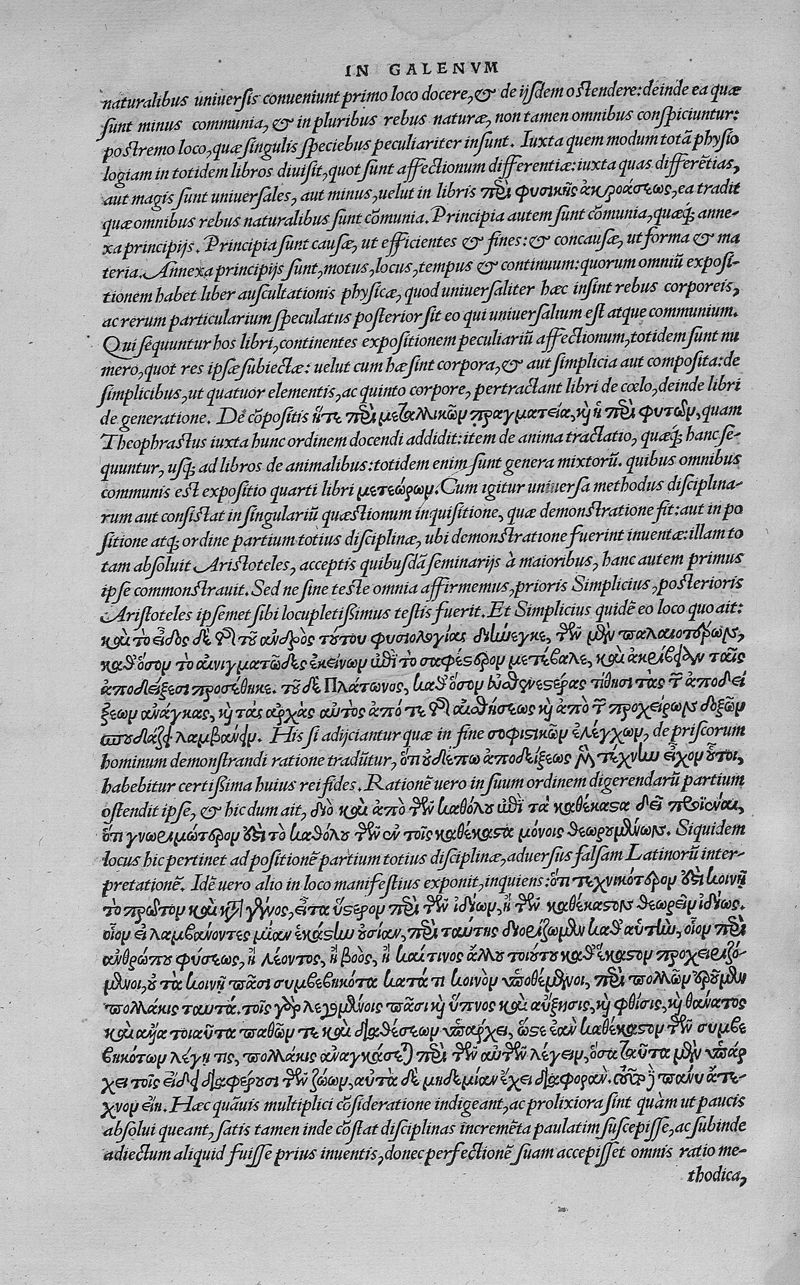 IN GALENVM
naturalibus uniuersis conueniunt primo loco docere, & de ijsdem ostendere: deinde ea quæ
sunt minus communia, & in pluribus rebus naturæ, non tamen omnibus conspiciuntur:
postremo loco, quæ singulis speciebus peculiariter insunt. Iuxta quem modum totā physio
logiam in totidem libros diuisit, quot sunt affectionum differentiæ: iuxta quas differētias,
aut magis sunt uniuersales, aut minus, uelut in libris περὶ φυσικῆς ἀκροάσεως, ea tradit
quæ omnibus rebus naturalibus sunt cōmunia. Principia autem sunt cōmunia, quæq; anne-
xa principijs. Principia sunt causæ, ut efficientes & fines: & concausæ, ut forma & ma
teria. Annexa principijs sunt, motus, locus, tempus & continuum: quorum omniū exposi-
tionem habet liber auscultationis physicæ, quod uniuersaliter hæc insint rebus corporeis,
ac rerum particularium speculatus posterior sit eo qui uniuersalium est atque communium.
Qui sequuntur hos libri, continentes expositionem peculiariū affectionum, totidem sunt nu
mero, quot res ipsæ subiectæ: uelut cum hæ sint corpora, & aut simplicia aut composita: de
simplicibus, ut quatuor elementis, ac quinto corpore, pertractant libri de cœlo, deinde libri
de generatione. De cōpositis ἥτε περὶ μεταλλικῶν πραγματεία, κὴ ἡ περὶ φυτῶν, quam
Theophrastus iuxta hunc ordinem docendi addidit: item de anima tractatio, quæq; hanc se-
quuntur, usq; ad libros de animalibus: totidem enim sunt genera mixtorū. quibus omnibus
communis est expositio quarti libri μετεώρων. Cum igitur uniuersa methodus disciplina-
rum aut consistat in singulariū quæstionum inquisitione, quæ demonstratione fit: aut in po
sitione atq; ordine partium totius disciplinæ, ubi demonstratione fuerint inuentæ: illam to
tam absoluit Aristoteles, acceptis quibusdā seminarijs à maioribus, hanc autem primus
ipse commonstrauit. Sed ne sine teste omnia affirmemus, prioris Simplicius, posterioris
Aristoteles ipsemet sibi locupletißimus testis fuerit. Et Simplicius quidē eo loco quo ait:
καὶ τὸ εἶδος δὲ τῆς τοῦ ἀνδρὸς τούτου φυσιολογίας διήνεγκε, τῶν μὲν παλαιοτέρων,
καθ᾽ ὅσον τὸ αἰνιγματῶδες ἐκείνων ἐπὶ τὸ σαφέστερον μετέβαλε, καὶ ἀκρίβειαν ταῖς
ἀποδείξεσι προστέθηκε. τοῦ δὲ Πλάτωνος, καθ᾽ ὅσον ἐνεργεστέρας τίθησι τὰς τῶν ἀποδεί
ξεων ἀνάγκας, κὴ τὰς ἀρχὰς αὐτὸς ἀπό τε τῆς αἰσθήσεως κὴ ἀπὸ τῶν προχείρων δοξῶν
σπουδάζει λαμβάνειν. His si adijciantur quæ in fine σοφιστικῶν ἐλέγχων, de priscorum
hominum demonstrandi ratione tradūtur, ὅτι οὐδέπω ἀποδείξεως τὴν τέχνην εἶχον οὗτοι,
habebitur certißima huius rei fides. Rationē uero in suum ordinem digerendarū partium
ostendit ipse, & hic dum ait, διὸ καὶ ἀπὸ τῶν καθόλου ἐπὶ τὰ καθέκαστα δεῖ προϊέναι,
ὅτι γνωριμώτερον ἐστὶ τὸ καθόλου τῶν ἐν τοῖς καθέκαστα μόνοις θεωρουμένων. Siquidem
locus hic pertinet ad positionē partium totius disciplinæ, aduersus falsam Latinorū inter-
pretationē. Idē uero alio in loco manifestius exponit, inquiens: ὅτι τεχνικότερον ἐστὶ κοινῇ
τὸ πρῶτον καὶ κατὰ γένος, εἶτα ὕστερον περὶ τῶν ἰδίων, ἢ τῶν καθέκαστον θεωρεῖν ἰδίως.
οἷον εἰ λαμβάνοντες μίαν ἑκάστην οὐσίαν, περὶ ταύτης διορίζωμεν καθ᾽ αὑτὴν, οἷον περὶ
ἀνθρώπου φύσεως, ἢ λέοντος, ἢ βοὸς, ἢ καί τινος ἄλλου τοιούτου καθ᾽ ἕκαστον προχειριζό
μενοι, ἢ τὰ κοινῇ πᾶσι συμβεβηκότα κατά τι κοινὸν ὑποθέμενοι, περὶ πολλῶν ἐροῦμεν
πολλάκις ταυτά. τοῖς γὰρ λεγομένοις πᾶσι κὴ ὕπνος καὶ αὔξησις, κὴ φθίσις, κὴ θάνατος
καὶ ἄλλα τοιαῦτα παθῶν τε καὶ διαθέσεων ὑπάρχει, ὥστε ἐὰν καθέκαστον τῶν συμβε
βηκότων λέγῃ τις, πολλάκις ἀναγκάσεται περὶ τῶν αὐτῶν λέγειν, ὅσα ταῦτα μὲν ὑπάρ
χει τοῖς εἴδει διαφέρουσι τῶν ζώων, αὐτὰ δὲ μηδεμίαν ἔχει διαφοράν. πάνυ ἄτε-
χνον εἴη. Hæc quāuis multiplici cōsideratione indigeant, ac prolixiora sint quàm ut paucis
absolui queant, satis tamen inde cōstat disciplinas incremēta paulatim suscepisse, ac subinde
adiectum aliquid fuisse prius inuentis, donec perfectionē suam accepisset omnis ratio me-
thodica,